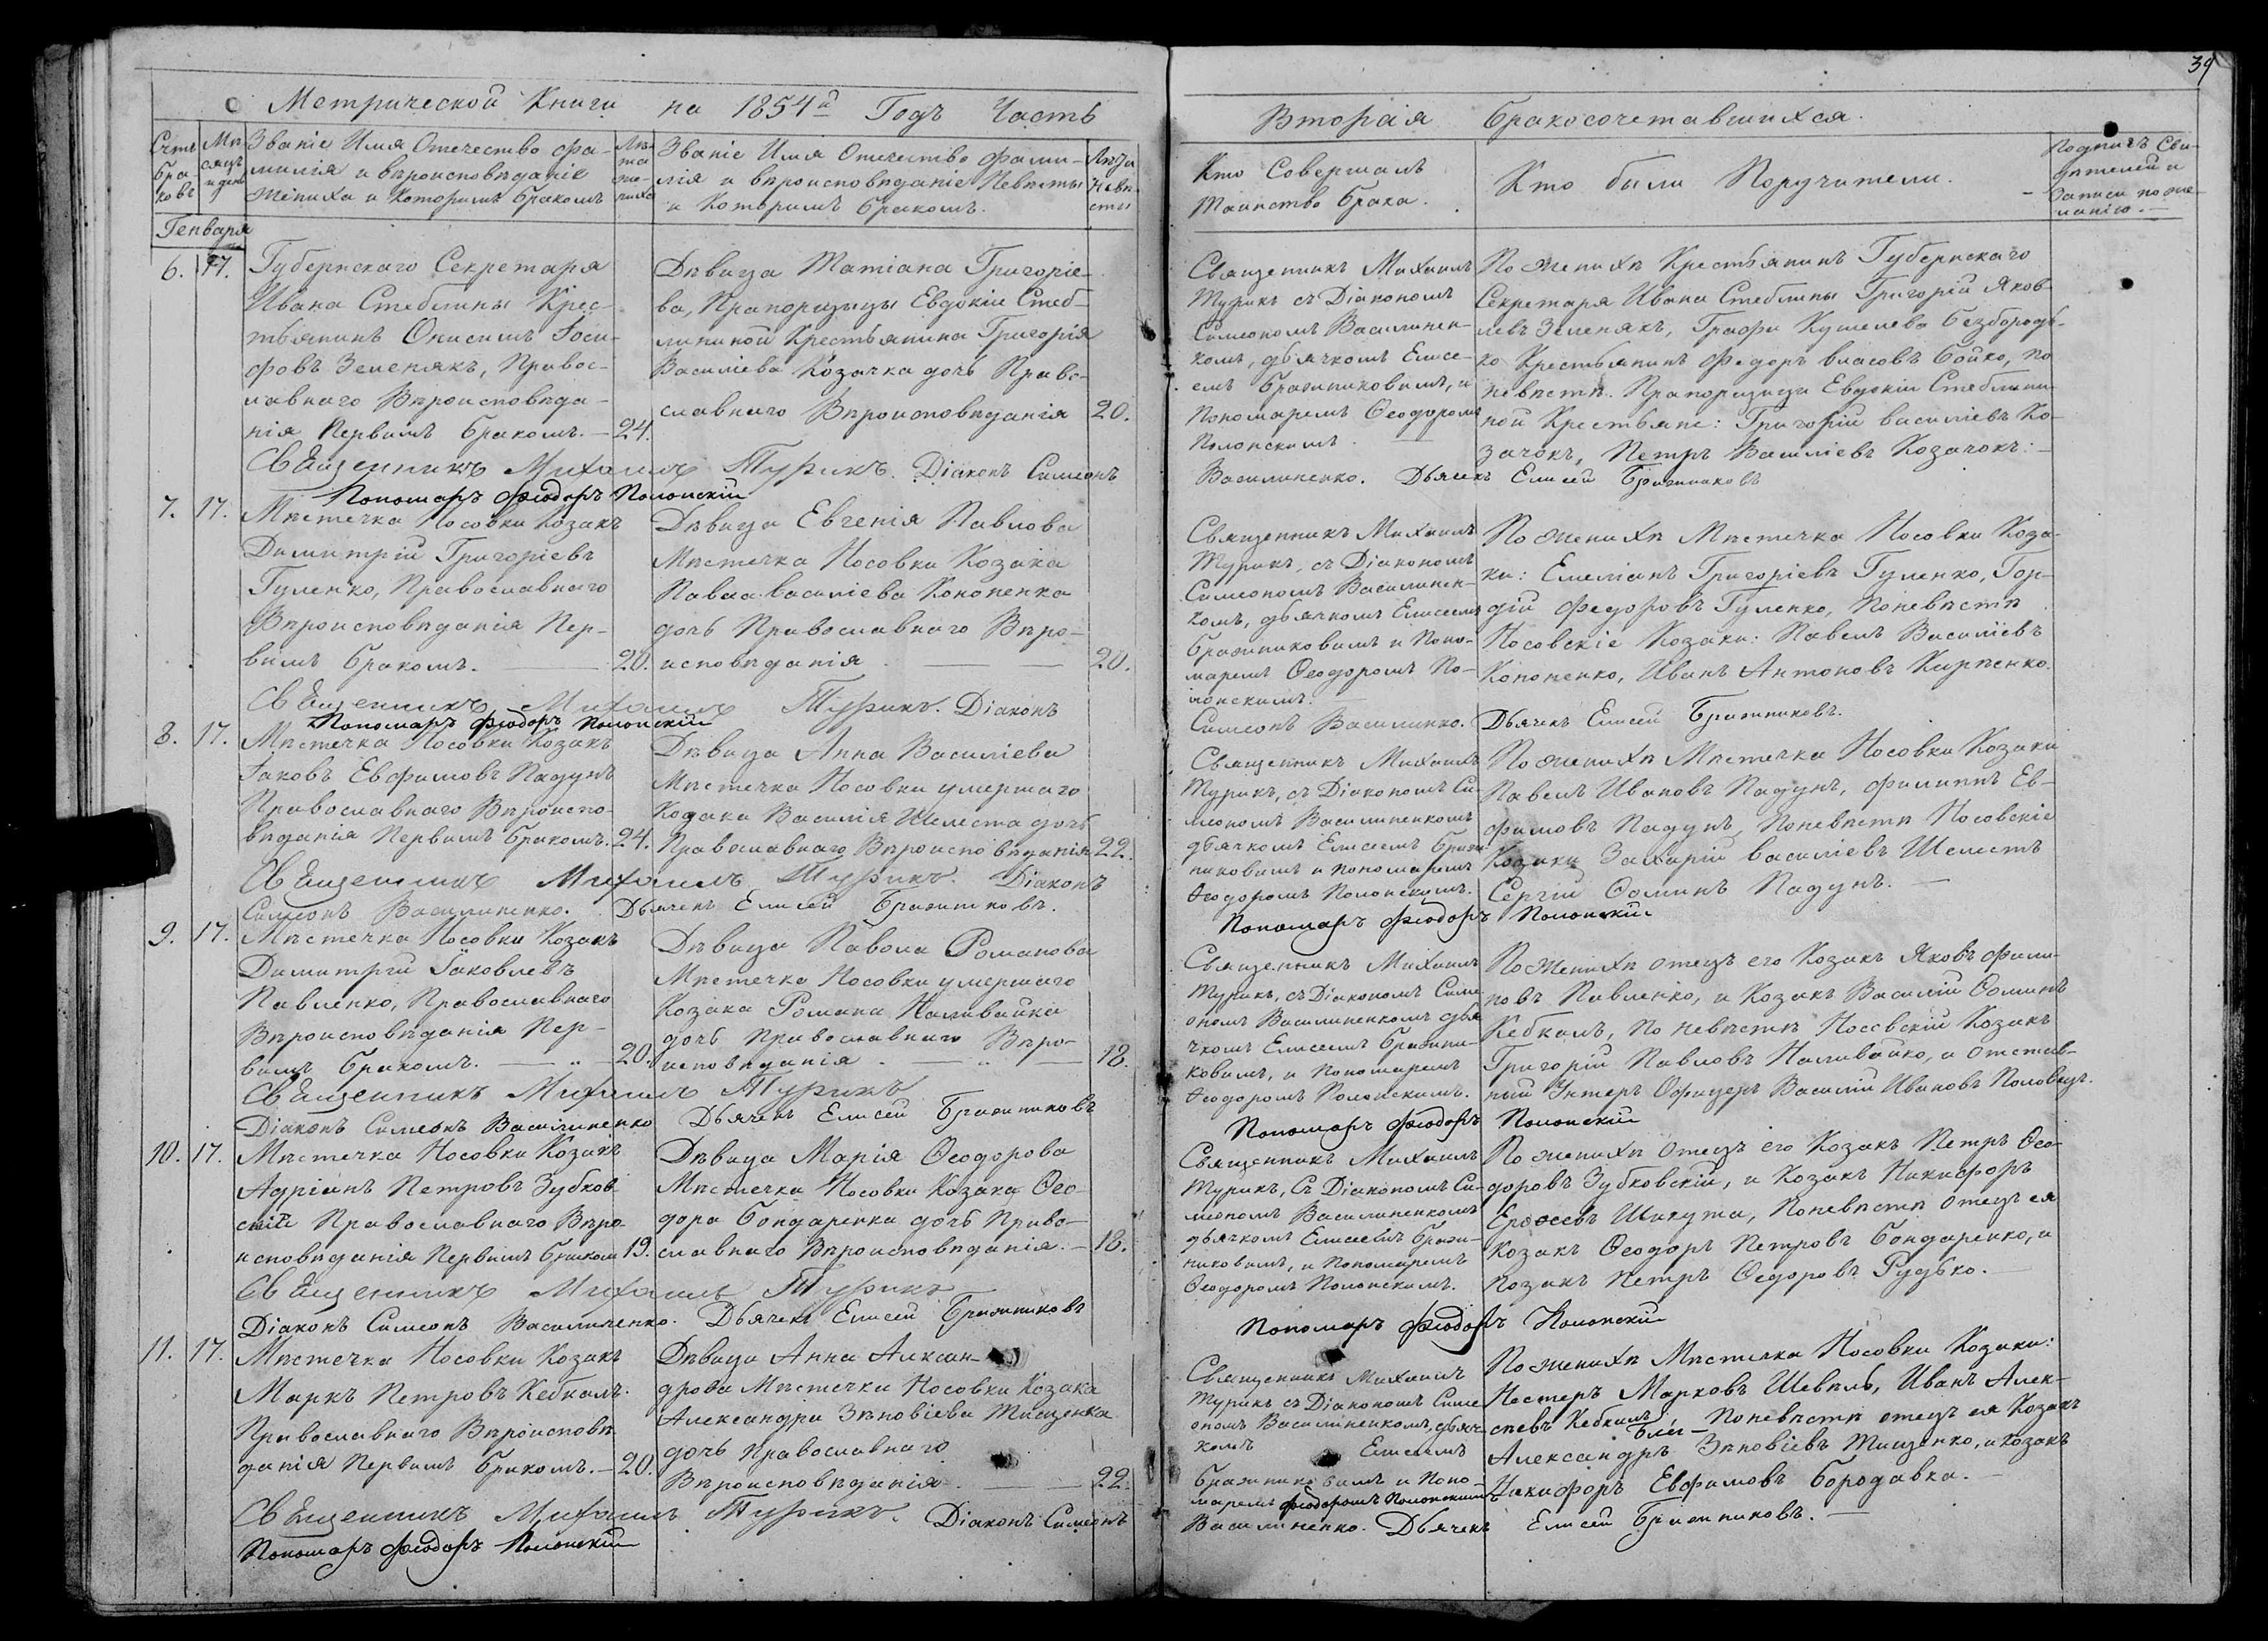 39
Метрической Книги на 1854й Годъ Часть
Вторая Бракосочетавшихся.
Счетъ браковъ
Мѣсяцъ и день
Званіе Имя Отечество фа-
милія и вѣроисповѣданіе
жениха и которимъ бракомъ
Лѣта жениха
Званіе Имя Отечество фами-
лія и вѣроисповѣданіе Невѣсты
и Которимъ бракомъ.
Лѣта Невѣсты
Кто Совершалъ
Таинство брака.
Кто были Поручители.
Подписъ Сви-
дѣтелей и
Записи по же-
ланію.
Генваря
6. 17.
Губернскаго Секретаря
Ивана Стеблины Крес-
тьянинъ Онисимъ Іоси-
фовъ Зеленякъ, Правос-
лавнаго Вѣроисповѣда-
нія Первимъ бракомъ. 24.
Дѣвица Татіана Григоріе-
ва, Прапорщицы Евдокіи Стеб-
лининой Крестьянина Григорія
Василіева Козачка дочь Право-
славнаго Вѣроисповѣданія 20.
Священникъ Михаилъ
Турикъ съ Діакономъ
Симеономъ Василинен-
комъ, дьячкомъ Елисе-
емъ бражниковимъ, и
Пономаремъ Ѳеодоромъ
Полонскимъ.
По женихѣ Крестьянинъ Губернскаго
Секретаря Ивана Стеблины Григорій Яков-
левъ Зеленякъ, Графа Кушелева безбородь-
ко Крестьянинъ Федоръ власовъ бойко, по
невѣстѣ. Прапорщици Евдокіи Стеблини-
ной Крестьяне: Григорій василіевъ Ко-
зачокъ, Петръ Василіевъ Козачокъ:
Священникъ Михаилъ Турикъ. Діаконъ Симеонъ
Василиненко. Дьячекъ Елисей Бражниковъ
Пономарь Феодоръ Полонскій
7. 17.
Мѣстечка Носовки Козакъ
Димитрій Григоріевъ
Гуленко, Православнаго
Вѣроисповѣданія Пер-
вимъ бракомъ. 20.
Дѣвица Евгенія Павлова
Мѣстечка Носовки Козака
Павла василіева Кононенка
дочь Православнаго Вѣро-
исповѣданія 20.
Священникъ Михаилъ
Турикъ, съ Діакономъ
Симеономъ Василинен-
комъ, дьячкомъ Елисеемъ
бражниковимъ и Поно-
маремъ Ѳеодоромъ По-
лонскимъ.
По женихѣ Мѣстечка Носовки Коза-
ки: Емеліанъ Григоріевъ Гуленко, Гор-
дій Федоровъ Гуленко, По невѣстѣ
Носовскіе Козаки: Павелъ Василіевъ
Кононенко, Иванъ Антоновъ Кирпенко.
Священникъ Михаилъ Турикъ. Діаконъ
Симеонъ Василинко. Дьячекъ Елисей Бражниковъ.
Пономарь Феодоръ Полонскій
8. 17.
Мѣстечка Носовки Козакъ
Іаковъ Евфимовъ Падунъ
Православнаго Вѣроиспо-
вѣданія Первимъ бракомъ. 24.
Дѣвица Анна Василіева
Мѣстечка Носовки умершаго
Козака Василія Шелеста дочь
Православнаго Вѣроисповѣданія 22.
Священникъ Михаилъ
Турикъ, съ Діакономъ Си-
меономъ Василиненкомъ
дьячкомъ Елисеемъ бражн-
никовимъ и пономаремъ
Ѳеодоромъ Полонскимъ.
По женихѣ Мѣстечка Носовки Козаки
Павелъ Ивановъ Падунъ, филиппъ Ев-
фимовъ Падунъ, По невѣстѣ Носовскіе
Козаки Захарій василіевъ Шелестъ
Сергій Ѳоминъ Падунъ.
Священникъ Михаилъ Турикъ. Діаконъ
Симеонъ Василиненко. Дьячекъ Елисей Бражниковъ.
Пономарь Феодоръ Полонскій
9. 17.
Мѣстечка Носовки Козакъ
Димитрій Іаковлевъ
Павленко, Православнаго
Вѣроисповѣданія Пер-
вимъ бракомъ. 20.
Дѣвица Павола Романова
Мѣстечка Носовки умершаго
Козака Романа Наливайка
дочь Православнаго Вѣро-
исповѣданія 18.
Священникъ Михаилъ
Турикъ, съ Діакономъ Симе-
ономъ Василиненкомъ дья-
чкомъ Елисеемъ бражни-
ковимъ, и Пономаремъ
Ѳеодоромъ Полонскимъ.
По женихѣ отецъ его Козакъ Яковъ фили-
повъ Павленко, и Козакъ Василій Ѳоминъ
Кебкалъ, По невѣстѣ Носовскій Козакъ
Григорій Павловъ Наливайко, и отстав-
ный Унтеръ Офицеръ Василій Ивановъ Половецъ.
Священникъ Михаилъ Турикъ
Діаконъ Симеонъ Василиненко Дьячекъ Елисей Бражниковъ
Пономарь Феодоръ Полонскій
10. 17.
Мѣстечка Носовки Козакъ
Адріанъ Петровъ Зубков-
скій Православнаго Вѣро-
исповѣданія Первимъ бракомъ 19.
Дѣвица Марія Ѳеодорова
Мѣстечка Носовки Козака Ѳео-
дора бондаренка дочь Право-
славнаго Вѣроисповѣданія. 18.
Священникъ Михаилъ
Турикъ, съ Діакономъ Си-
меономъ Василиненкомъ
дьячкомъ Елисеемъ бражн-
никовимъ, и Пономаремъ
Ѳеодоромъ Полонскимъ.
По женихѣ отецъ его Козакъ Петръ Ѳео-
доровъ Зубковскій, и Козакъ Никифоръ
Ерофеевъ Шикута, По невѣстѣ отецъ ея
Козакъ Ѳеодоръ Петровъ бондаренко, и
Козакъ Петръ Ѳедоровъ Рудько.
Священникъ Михаилъ Турикъ
Діаконъ Симеонъ Василиненко. Дьячекъ Елисей Бражниковъ
Пономарь Феодоръ Полонскій
11. 17.
Мѣстечка Носовки Козакъ
Маркъ Петровъ Кебкалъ.
Православнаго Вѣроисповѣ-
данія Первимъ бракомъ. 20.
Дѣвица Анна Алексан-
дрова Мѣстечки Носовки Козака
Александра Зѣновіева Тищенка
дочь Православнаго
Вѣроисповѣданія 22.
Священникъ Михаилъ
Турикъ съ Діакономъ Симе-
ономъ Василиненкомъ, дьяч-
комъ Елисеемъ
бражниковимъ и Поно-
маремъ Феодоромъ Полонскимъ
По женихѣ Мѣстечка Носовки Козаки:
Нестеръ Марковъ Шевель, Иванъ Алек-
сѣевъ Кебкалъ, По невѣстѣ отецъ ея Козакъ
Александръ Зѣновіевъ Тищенко, и Козакъ
Никифоръ Евфимовъ бородавка.
Священникъ Михаилъ Турикъ. Діаконъ Симеонъ
Василиненко. Дьячекъ Елисей Бражниковъ.
Пономарь Феодоръ Полонскій